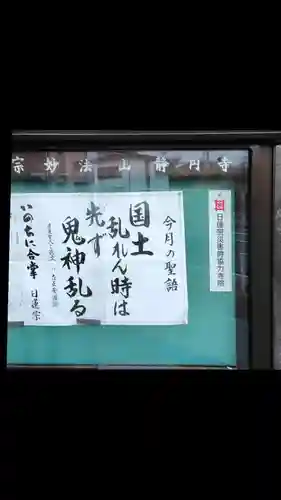 宗妙法山静円寺
今月の聖語
国土
乱れん時は
先ず
鬼神乱る
いのちに合掌 日蓮宗
日蓮宗災害救援協力寺院